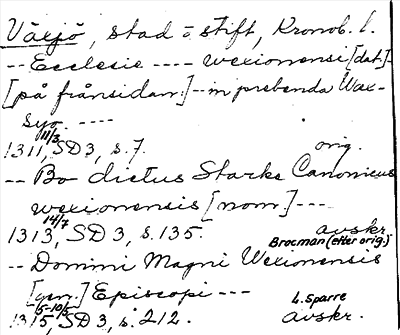 Växjö, stad o stift, Kronob. l.
-- Ecclesie ---- wexionensi [dat.]-
[på frånsidan:] -- in prebenda Wax-
syo. ----
11/3
1311, SD 3, s. 7. orig.
-- Bo dictus Starke Canonicus
wexionensis [nom.] ---
14/7
1313, SD 3, s. 135. avskr.
Brocman (efter orig.)
-- Domini Magni Wexionensis
[gen.] Episcopi ---
5-10/5 L. Sparre
1315, SD 3, s. 212. avskr.